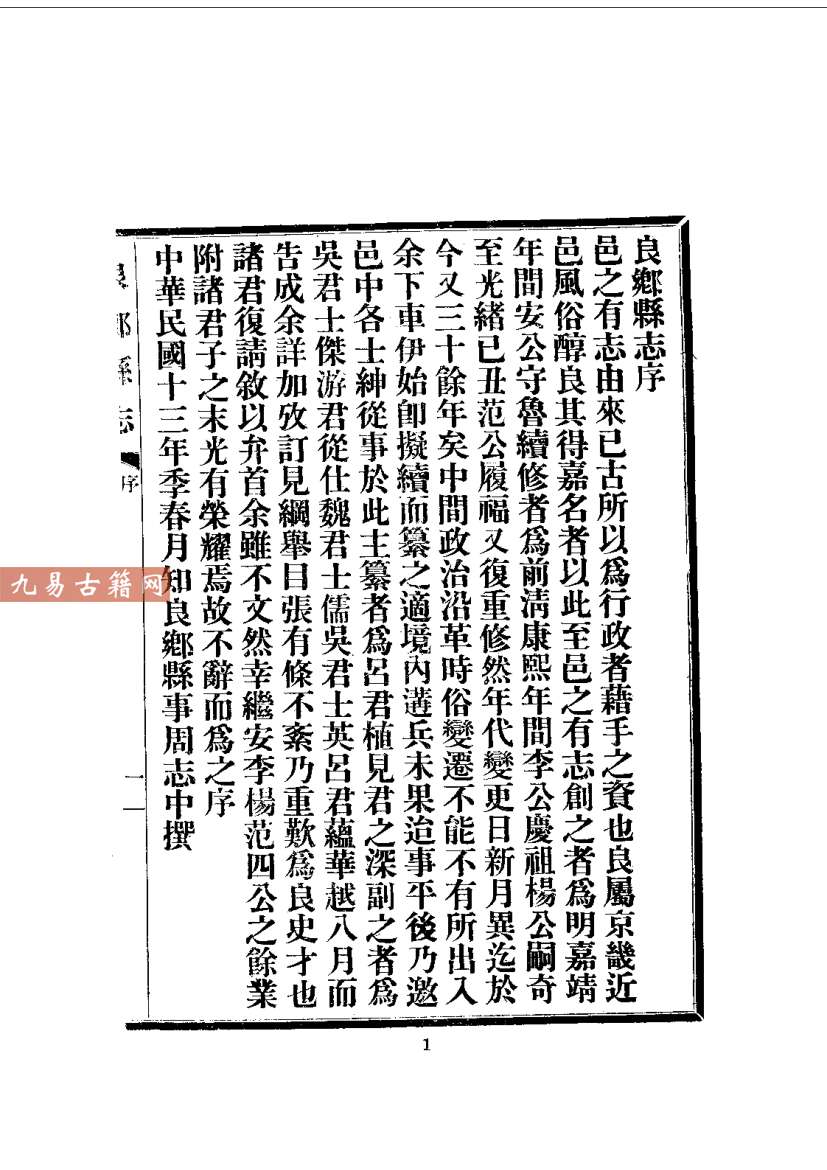 良鄉縣志序
邑之有志由來已古所以爲行政者藉手之資也良屬京畿近
邑風俗醇良其得嘉名者以此至邑之有志創之者爲明嘉靖
年間安公守魯續修者爲前淸康熙年間李公慶祖楊公嗣奇
至光緒己丑范公履福又復重修然年代變更日新月異迄於
今又三十餘年矣中間政治沿革時俗變遷不能不有所出入
余下車伊始卽擬續而纂之適境內遘兵未果迨事平後乃邀
邑中各士紳從事於此主纂者爲呂君植見君之深副之者爲
吳君士傑游君從仕魏君士儒吳君士英呂君蘊華越八月而
告成余詳加攷訂見綱舉目張有條不紊乃重歎爲良史才也
諸君復請敘以弁首余雖不文然幸繼安李楊范四公之餘業
附諸君子之末光有榮耀焉故不辭而爲之序
中華民國十三年季春月知良鄉縣事周志中撰
良鄉縣志
序
一
九易古籍网
1